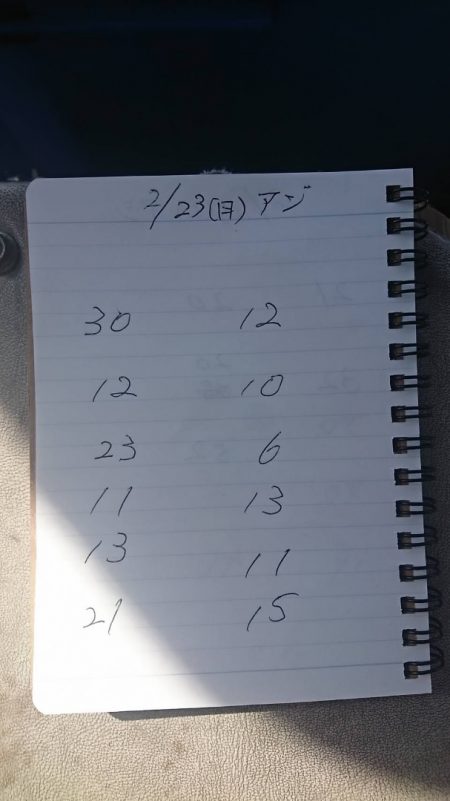 2/23(日)アジ
30 12
12 10
23 6
11 13
13 11
21 15